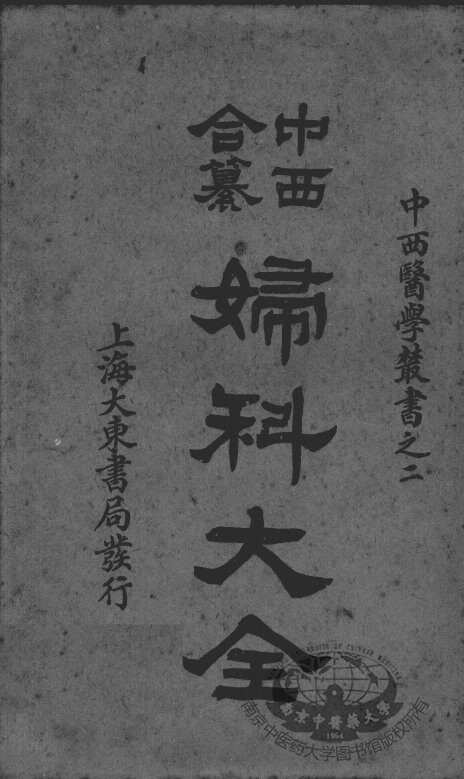 中西醫學叢書之二
中西
合纂
婦科大全
上海大東書局發行
南京中醫藥大學
1954
南京中医药大学图书馆版权所有